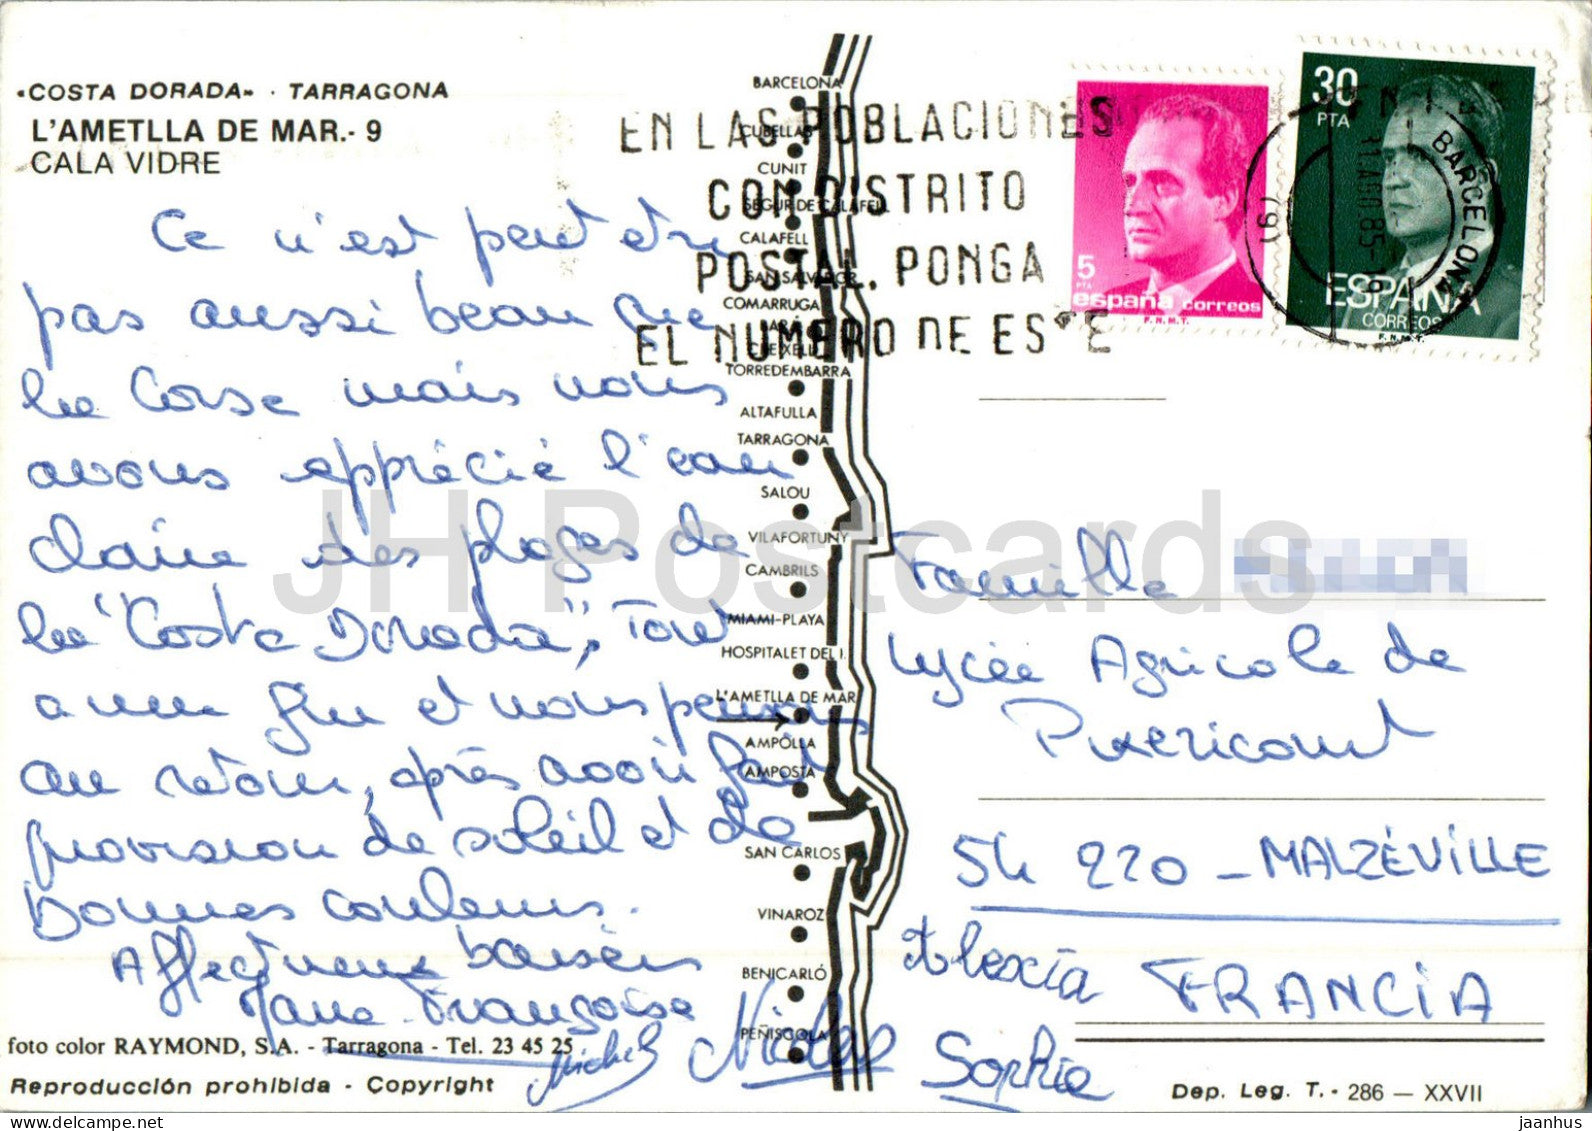 «COSTA DORADA» · TARRAGONA
L'AMETLLA DE MAR.- 9
CALA VIDRE
Ce n'est peut etre
pas aussi beau que
la Corse mais nous
avons apprécié l'eau
claire des plages de
la "Costa Dorada", Tout
a une fin et nous pensons
au retour, après avoir fait
provision de soleil et de
bonnes couleurs.
Affectueux baisers
Marie-Françoise
Michel Nicolas Sophie
Alexia
foto color RAYMOND, S.A. - Tarragona - Tel. 23 45 25
Reproducción prohibida - Copyright
BARCELONA
CUBELLAS
CUNIT
SEGUR DE CALAFELL
CALAFELL
SAN SALVADOR
COMARRUGA
TORREDEMBARRA
ALTAFULLA
TARRAGONA
SALOU
VILAFORTUNY
CAMBRILS
MIAMI-PLAYA
HOSPITALET DEL I.
L'AMETLLA DE MAR
AMPOLLA
AMPOSTA
SAN CARLOS
VINAROZ
BENICARLÓ
PEÑISCOLA
EN LAS POBLACIONES
CON DISTRITO
POSTAL, PONGA
EL NUMERO DE ESTE
5
PTA
españa correos
F.N.M.T.
30
PTA
ESPAÑA
CORREOS
F.N.M.T.
BARCELONA
AGO 85
Famille
Lycée Agricole de
Pixericourt
54 220 - MALZÉVILLE
FRANCIA
Dep. Leg. T. - 286 — XXVII
JH Postcards
jaanhus